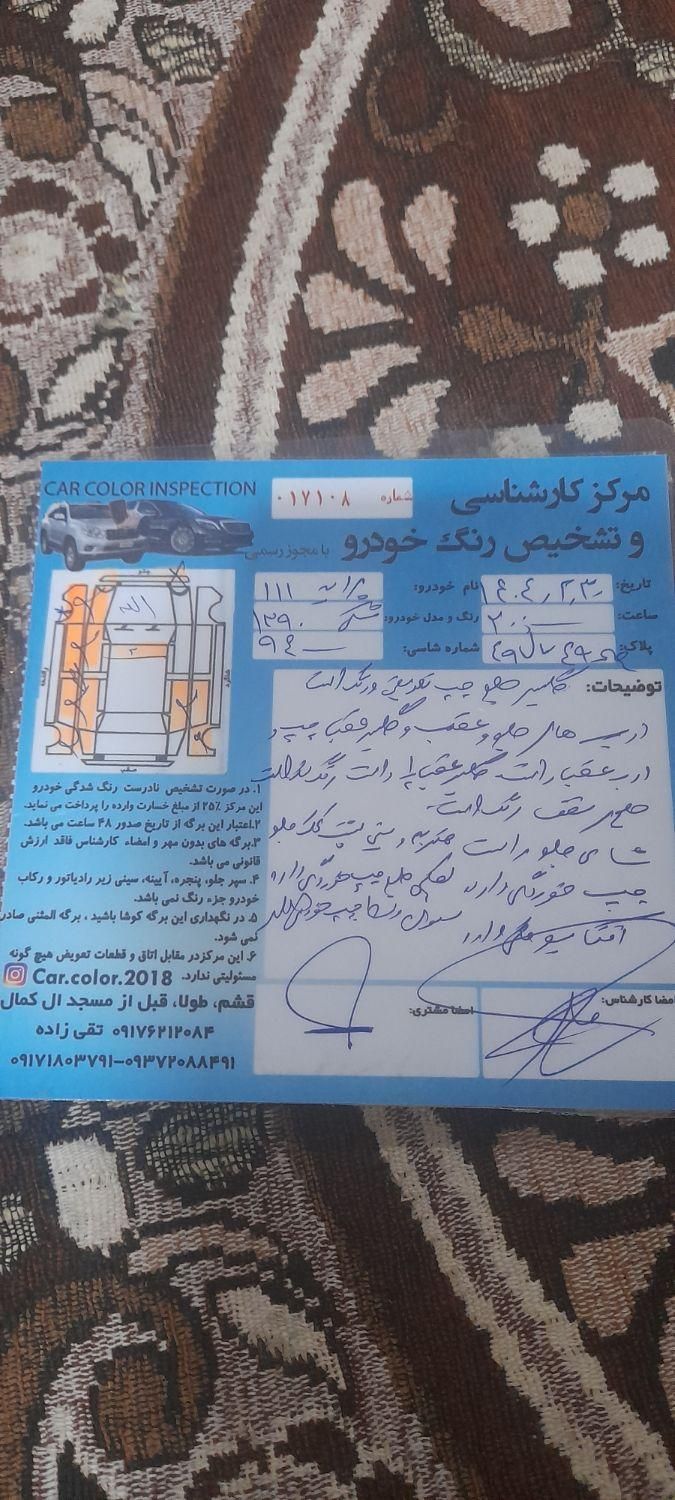 مرکز کارشناسی
و تشخیص رنگ خودرو
با مجوز رسمی
CAR COLOR INSPECTION
شماره ۰۱۷۱۰۸
تاریخ: ۱۴۰۴٫۲٫۳۰
نام خودرو: پراید ۱۱۱
ساعت: ۲۰:۰۰
رنگ و مدل خودرو: مشکی ۱۳۹۰
پلاک:
شماره شاسی: ۹۴۰
جلو
راننده
شاگرد
عقب
توضیحات: گلگیر جلو چپ تعویض و رنگ است
درب های جلو و عقب و گلگیر عقب چپ و
درب عقب راست گلگیر عقب راست رنگ است
سقف رنگ است
شاسی جلو راست ضربه و سینی پشت کمک جلو
چپ خوردگی دارد جلو چپ خوردگی دارد
۱. در صورت تشخیص نادرست رنگ شدگی خودرو
این مرکز ۲۵٪ از مبلغ خسارت وارده را پرداخت می نماید.
۲. اعتبار این برگه از تاریخ صدور ۴۸ ساعت می باشد.
۳. برگه های بدون مهر و امضاء کارشناس فاقد ارزش
قانونی می باشد.
۴. سپر جلو، پنجره، آیینه، سینی زیر رادیاتور و رکاب
خودرو جزء رنگ نمی باشد.
۵. در نگهداری این برگه کوشا باشید ، برگه المثنی صادر
نمی شود.
۶. این مرکز در مقابل اتاق و قطعات تعویض هیچ گونه
مسئولیتی ندارد.
Car.color.2018
قشم، طولا، قبل از مسجد ال کمال
۰۹۱۷۶۲۱۲۰۸۴ تقی زاده
۰۹۱۷۱۸۰۳۷۹۱-۰۹۳۷۲۰۸۸۴۹۱
امضا مشتری:
امضا کارشناس: